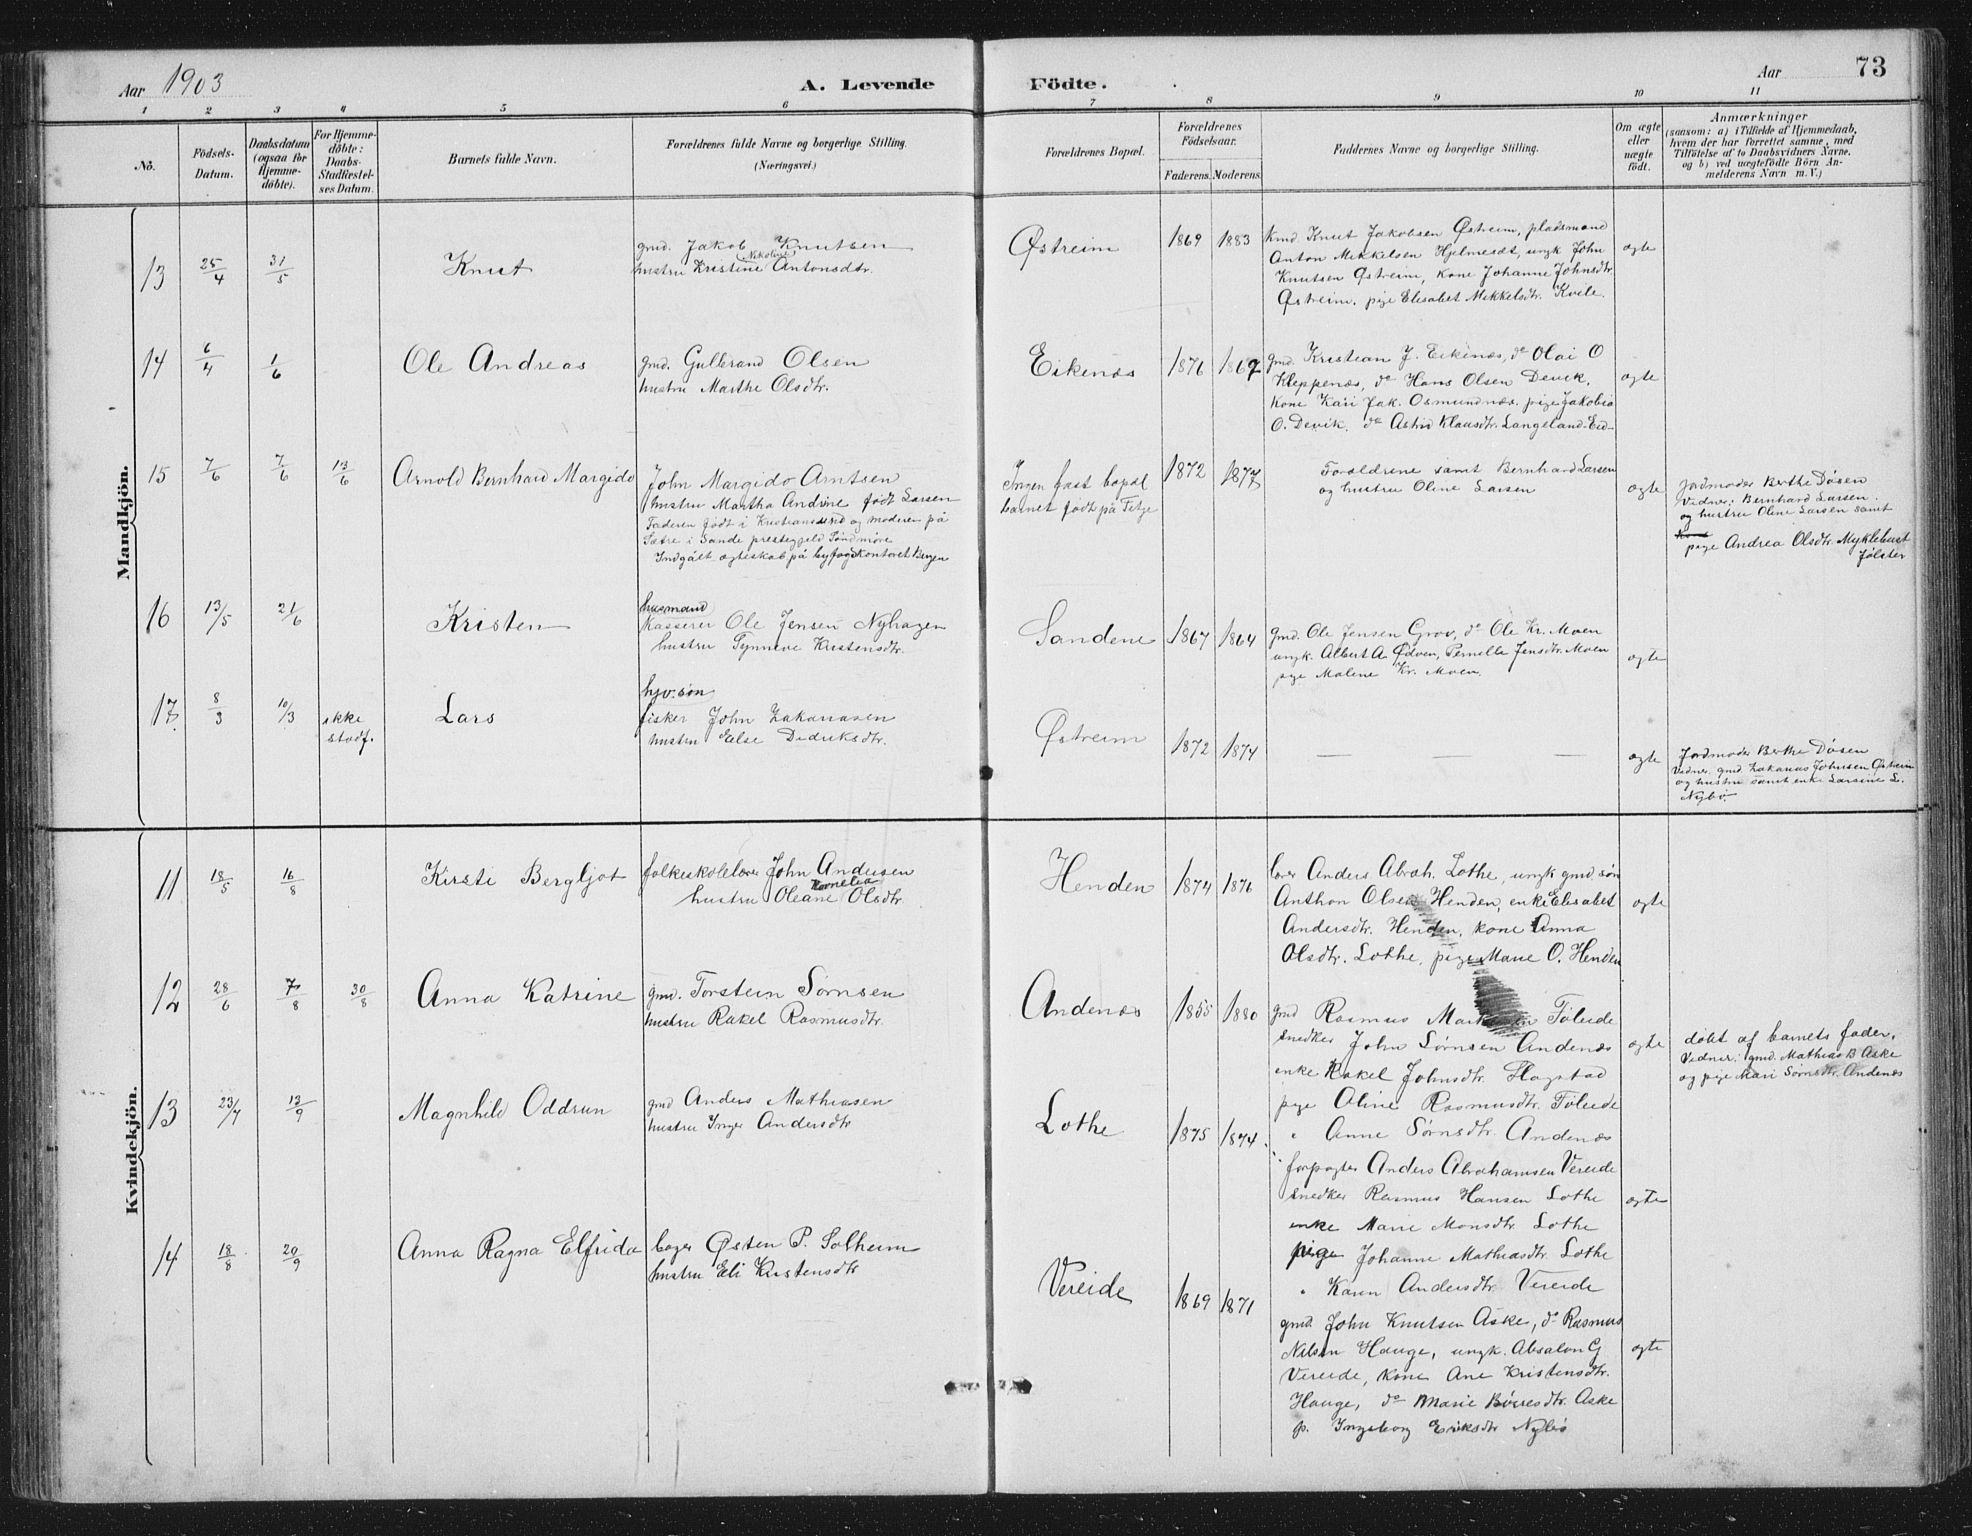 Aar 1903
A. Levende
Födte.
Aar
73
1 2 3 4 5 6 7 8 9 10 11
No.
Födsels-Datum.
Daabsdatum (ogsaa for Hjemme-döbte).
For Hjemme-döbte: Daabs-Stadfæstel-ses Datum.
Barnets fulde Navn.
Forældrenes fulde Navne og borgerlige Stilling.
(Næringsvei.)
Forældrenes Bopæl.
Forældrenes Födselsaar.
Faderens. Moderens.
Faddernes Navne og borgerlige Stilling.
Om ægte eller uægte födt.
Anmærkninger
(saasom: a) i Tilfælde af Hjemmedaab,
hvem der har forrettet samme, med
Tilföielse af to Daabsvidners Navne.
og b) ved uægtefödte Börn An-
melderens Navn m. V.)
Mandkjön.
13 25/4 31/5 Knut
gmd. Jakob Knutsen
Nikoline
hustru Kristine Antonsdtr.
Østreim 1869 1883
Kmd. Knut Jakobsen Østreim, pladsmand
Anton Mikkelsen Hjelmeset, ungk John
Knutsen Østreim, kone Johanne Johnsdtr.
Østreim. pige Elisabet Mikkelsdtr. Kvile.
ægte
14 6/4 1/6 Ole Andreas
gmd. Gulbrand Olsen
hustru Marthe Olsdtr.
Eikenæs 1876 1867
gmd. Kristian J. Eikenæs, do Olai O
Kleppenæs, do Hans Olsen Devik,
Kone Kari Jak. Osmundnæs. pige Jakobia
O. Devik. do Astrid Klausdtr. Langeland-Eid-
ægte
15 7/6 7/6 13/6 Arnold Bernhard Margido
John Margido Arntsen
hustru Martha Andrine født Larsen
Faderen født i Kristianssund og moderen på
Sætre i Sande prestegjeld Søndmøre
Indgått ægteskab på byfogdkontoret Bergen
Ingen fast bopæl
barnet født på Fitje
1872 1877
Forældrene samt Bernhard Larsen
og hustru Oline Larsen
ægte
Jordmoder Berthe Døsen
Vidner: Bernhard Larsen.
og hustru Oline Larsen samt
pige Andrea Olsdtr. Myklebust
Jølster
16 13/5 21/6 Kristen
husmand
Kasserer Ole Jensen Nyhagen
hustru Synneve Kristensdtr.
Sandene 1867 1864
gmd. Ole Jensen Grov, do Ole Kr. Moen
ungk. Albert A. Ødven, Pernelle Jensdtr. Moen
pige Malene Kr. Moen.
ægte
17 8/3 10/3 ikke stadf. Lars
hjv. søn
fisker John Zakariasen
hustru Else Didriksdtr.
Østreim 1872 1874
— — —
ægte
Jordmoder Berthe Døsen
Vidner. gmd. Zakarias Johnsen Østreim
og hustru samt enke Larsine L.
Nybø.
Kvindekjön.
11 18/5 16/8 Kirsti Bergljot
folkeskolelærer John Andersen
Kornelia
hustru Oleane Olsdtr.
Henden 1874 1876
lærer Anders Abrah. Lothe, ungk gmd. søn
Anthon Olsen Henden, enke Elisabet
Andersdtr. Henden, kone Anna
Olsdtr. Lothe, pige Marie O. Henden
ægte
12 28/6 7/8 30/8 Anna Katrine
gmd. Torstein Sørnsen
hustru Rakel Rasmusdtr.
Andenæs 1855 1880
gmd Rasmus Markusen Føleide
snedker John Sørnsen Andenæs
enke Rakel Johnsdtr. Hagstad
pige Oline Rasmusdtr. Føleide
" Anne Sørnsdtr. Andenæs
ægte
døbt af barnets fader.
Vidner: gmd. Mathias B Aske
og pige Mari Sørnsdtr. Andenæs
13 23/7 13/9 Magnhild Oddrun
gmd Anders Mathiasen
hustru Inger Andersdtr
Lothe 1875 1874.
forpagter Anders Abrahamsen Vereide
snedker Rasmus Hansen Lothe
enke Marie Monsdtr. Lothe
pige Johanne Mathiasdtr. Lothe
" Karen Andersdtr. Vereide
ægte
14 18/8 20/9 Anna Ragna Elfrida
bager Østen P. Solheim
hustru Eli Kristensdtr
Vereide 1869 1871
gmd. John Knutsen Aske, do Rasmus
Nilsen Hauge, ungk. Absalon G
Vereide, kone Ane Kristensdtr.
Hauge, do Marie Børresdtr. Aske
p. Ingeborg Eriksdtr Nybø
ægte